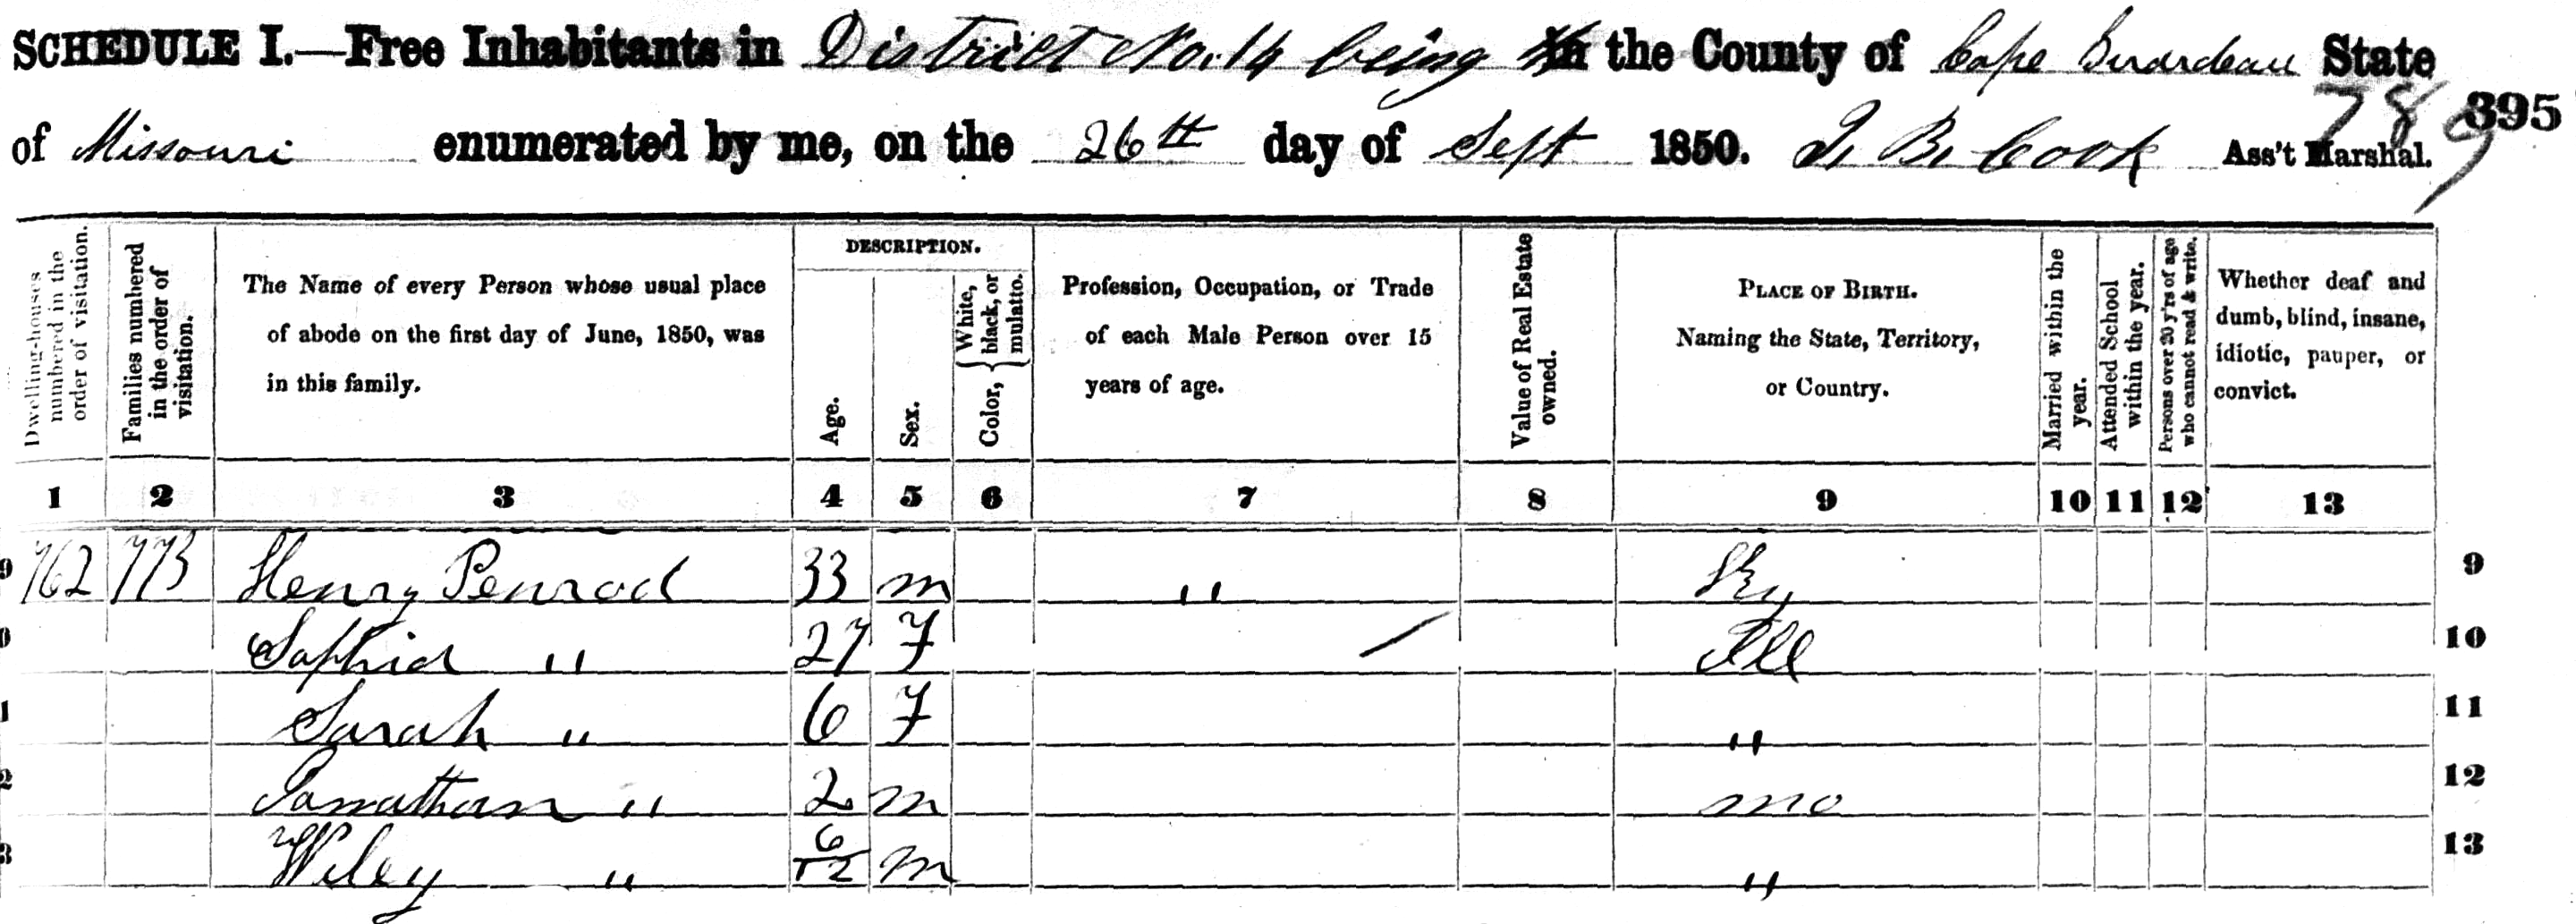 SCHEDULE I.—Free Inhabitants in District No. 14 being in the County of Cape Girardeau State
of Missouri enumerated by me, on the 26th day of Sept 1850. B. Cook Ass't Marshal.
789 395
Dwelling-houses numbered in the order of visitation.
Families numbered in the order of visitation.
The Name of every Person whose usual place
of abode on the first day of June, 1850, was
in this family.
DESCRIPTION.
Age.
Sex.
Color, { White, black, or mulatto.
Profession, Occupation, or Trade
of each Male Person over 15
years of age.
Value of Real Estate owned.
PLACE OF BIRTH.
Naming the State, Territory,
or Country.
Married within the year.
Attended School within the year.
Persons over 20 y'rs of age who cannot read & write.
Whether deaf and
dumb, blind, insane,
idiotic, pauper, or
convict.
1 2 3 4 5 6 7 8 9 10 11 12 13
9 762 773 Henry Penrod 33 m " Ky 9
0 Sophia " 27 F / Ill 10
1 Sarah " 6 F " 11
2 Jonathan " 2 m mo 12
3 Wiley " 6/12 m " 13